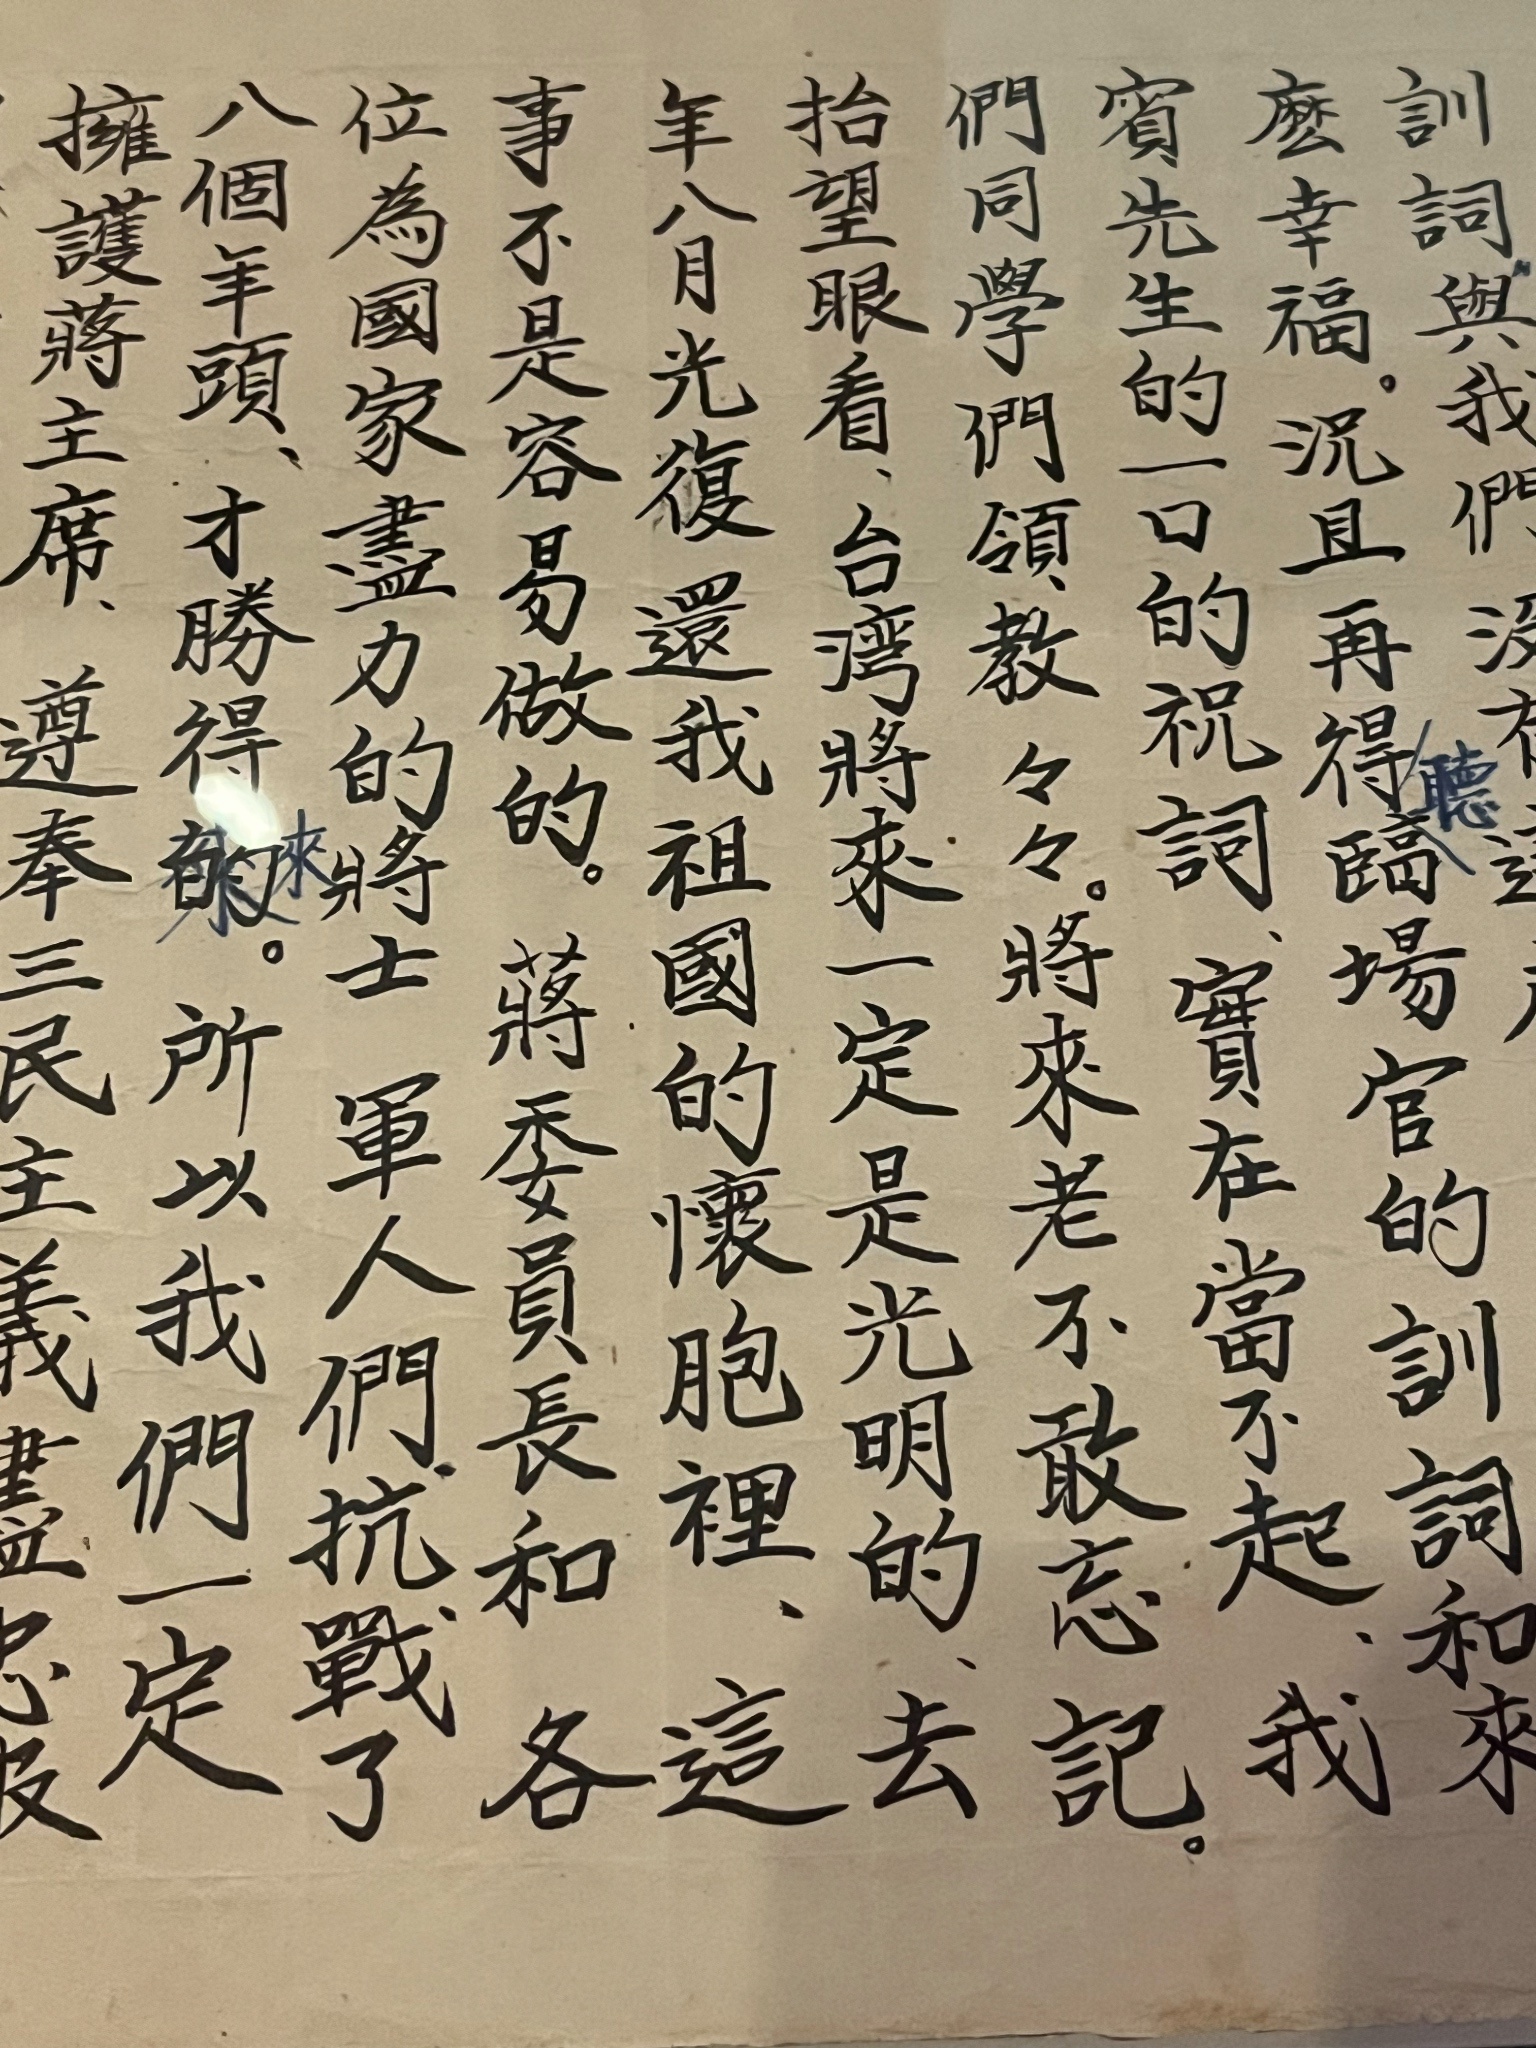 訓詞與我們没有這
麽幸福。況且再得聽臨場官的訓詞和來
賓先生的一口的祝詞、實在當不起、我
們同學們領教々々。將來老不敢忘記。
抬望眼看、台湾將來一定是光明的、去
年八月光復還我祖國的懷胞裡、這
事不是容易做的。蔣委員長和各
位為國家盡力的將士軍人們抗戰了
八個年頭、才勝得來。所以我們一定
擁護蔣主席、遵奉三民主義盡忠報